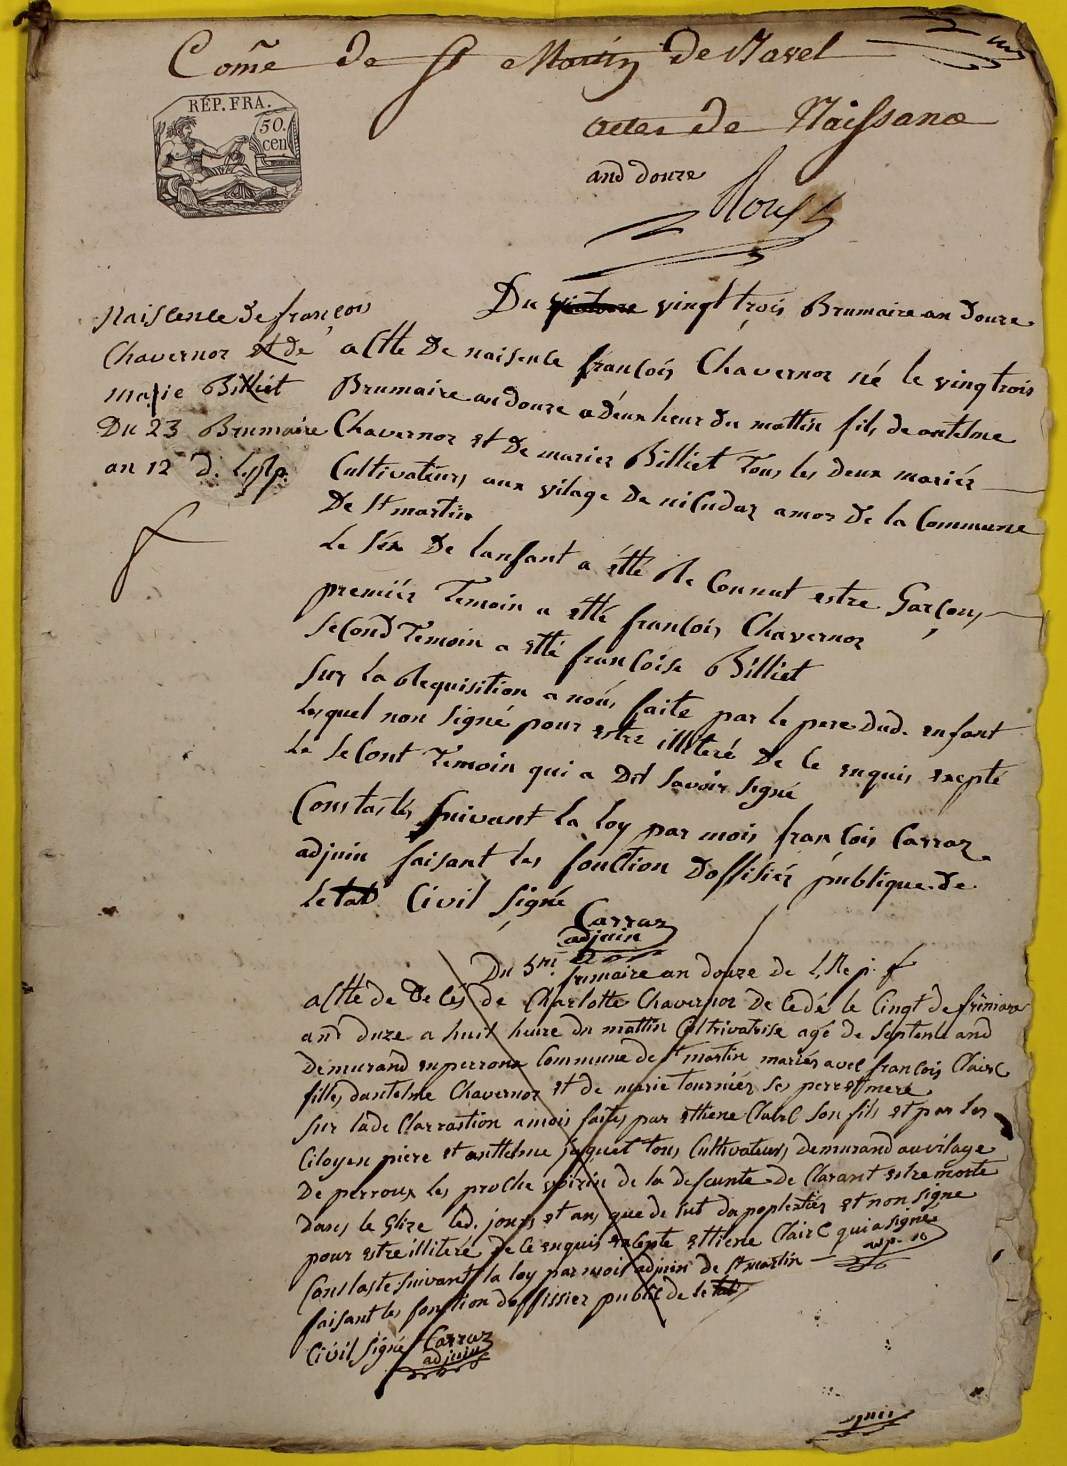 Come de St Martin de Bavel
RÉP. FRA.
50.
cen
actes de Naissance
and douze
Du vingt trois Brumaire an douze
Naiscence de françois
Chavernoz et de
marie Billiet
Du 23 Brumaire
an 12 d. L. Rp.
actte De naisence françois Chavernoz né le vingtrois
Brumaire an douze a deux heur du mattin fils de antelme
Chavernoz et De mariez Billiet Tous les deux mariéz
Cultivateurs aux vilage De de la Commune
De St martin
Le séx De lanfant a été Reconnut estre Garçons
premiér Temoin a etté françois Chavernoz
second Temoin a etté françoise Billiet
sur La Requisition a nous faite par le pere Dud. enfant
Lesquel non signé pour estre illiteré De ce enquis exepté
Le secont Temoin qui a Dit savoir signé
Constatés suivant La loy par mois françois Carraz
adjuin faisant les fonction Doffisiér publique de
Letat Civil signé
Carraz
adjuin
Du 5me frimaire an douze de L. Rep. f
actte de De cés de Charlotte Chavernoz De cedé le Cingt de frimaire
and duze a huit heure du mattin Cultrivatrise agé de septente and
Demurand enperroux Commune de St martin mariés avec françois Clairc
fille dantelme Chavernoz Et de marie tourniér ses pere et mere
sur lade Clarrastion a mois faites par ettiene Clairc son fils et par les
Citoyen piere et anttelme juquet tous Cultivateurs demurand au vilage
De perroux les proche voizin de la defeunte de Clarant estre morte
dans le led. jours et ans que de sut et non signe
pour estre illiteré de ce enquis exepte ettiene Clairc qui a signé
Constaste suivant la loy par mois adjuin de St martin
faisant les fonction doffissier public de letat
Civil signé Carraz
adjuin